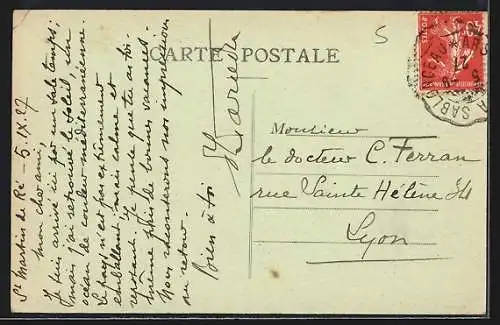 CARTE POSTALE
5
St Martin de Ré - 5. IX. 27
mon cher ami,
Je suis arrivé ici par un sale temps;
mais j'ai retrouvé le soleil, un
océan de couleur méditerranéenne.
Le pays n'est pas extrêmement
embêtant mais calme et
reposant. Je pense que tu as toi-
même pris de bonnes vacances.
Nous raconterons nos impressions
au retour.
Bien à toi
Monsieur
le docteur C. Ferran
rue Sainte Hélène 34
Lyon
POSTES
SABL